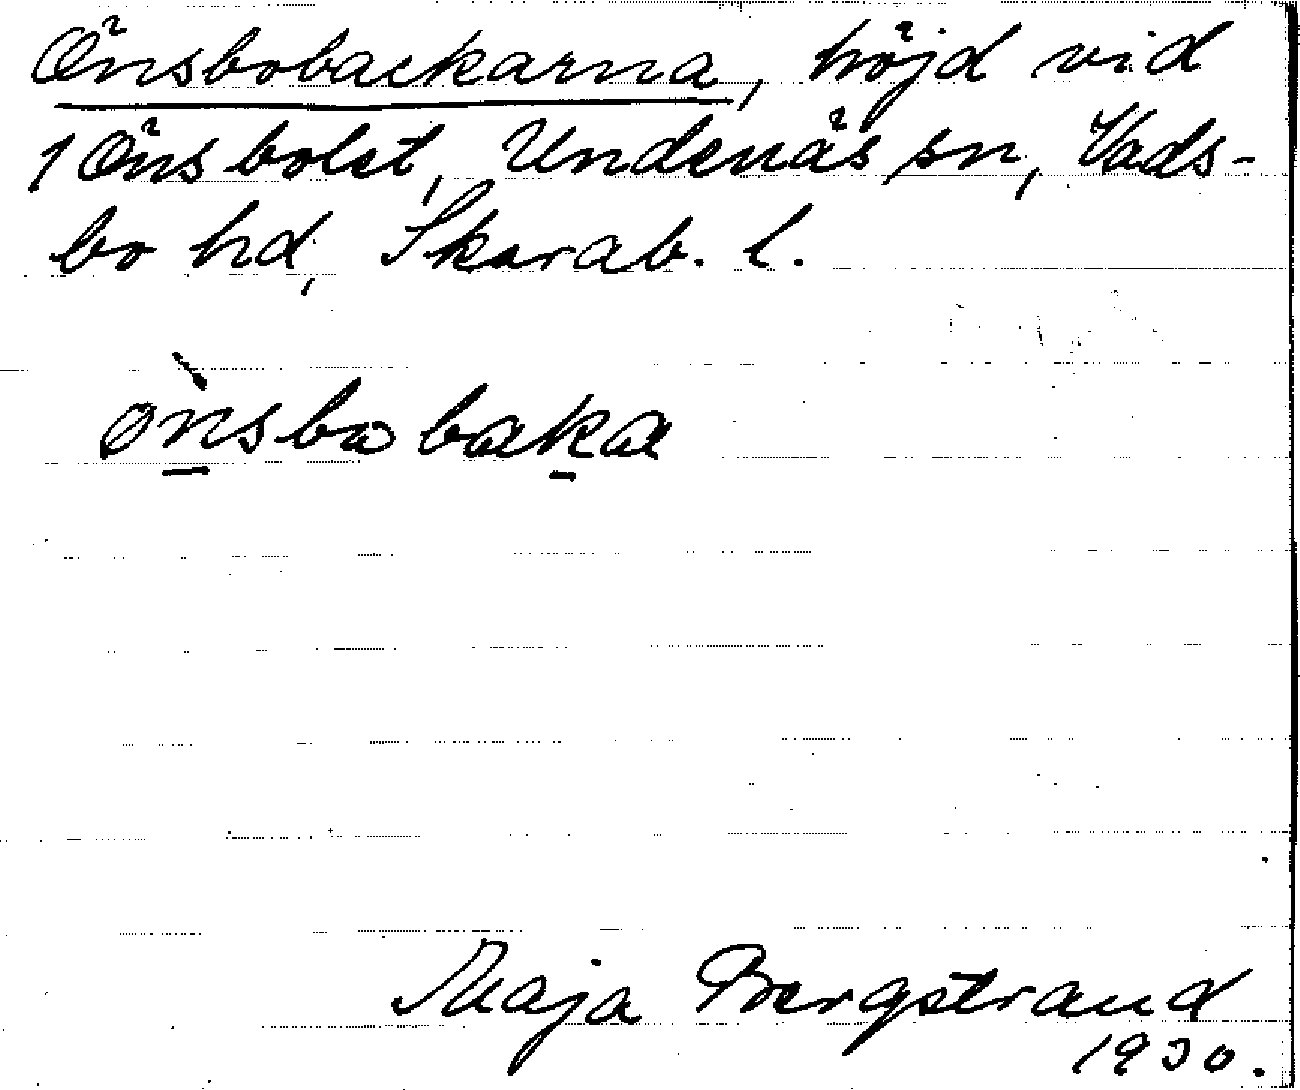 Önsbobackarna, höjd vid
1 Önsbolet, Undenäs sn, Vads-
bo hd, Skarab. l.
ònsbωbaka
Maja Bergstrand
1930.